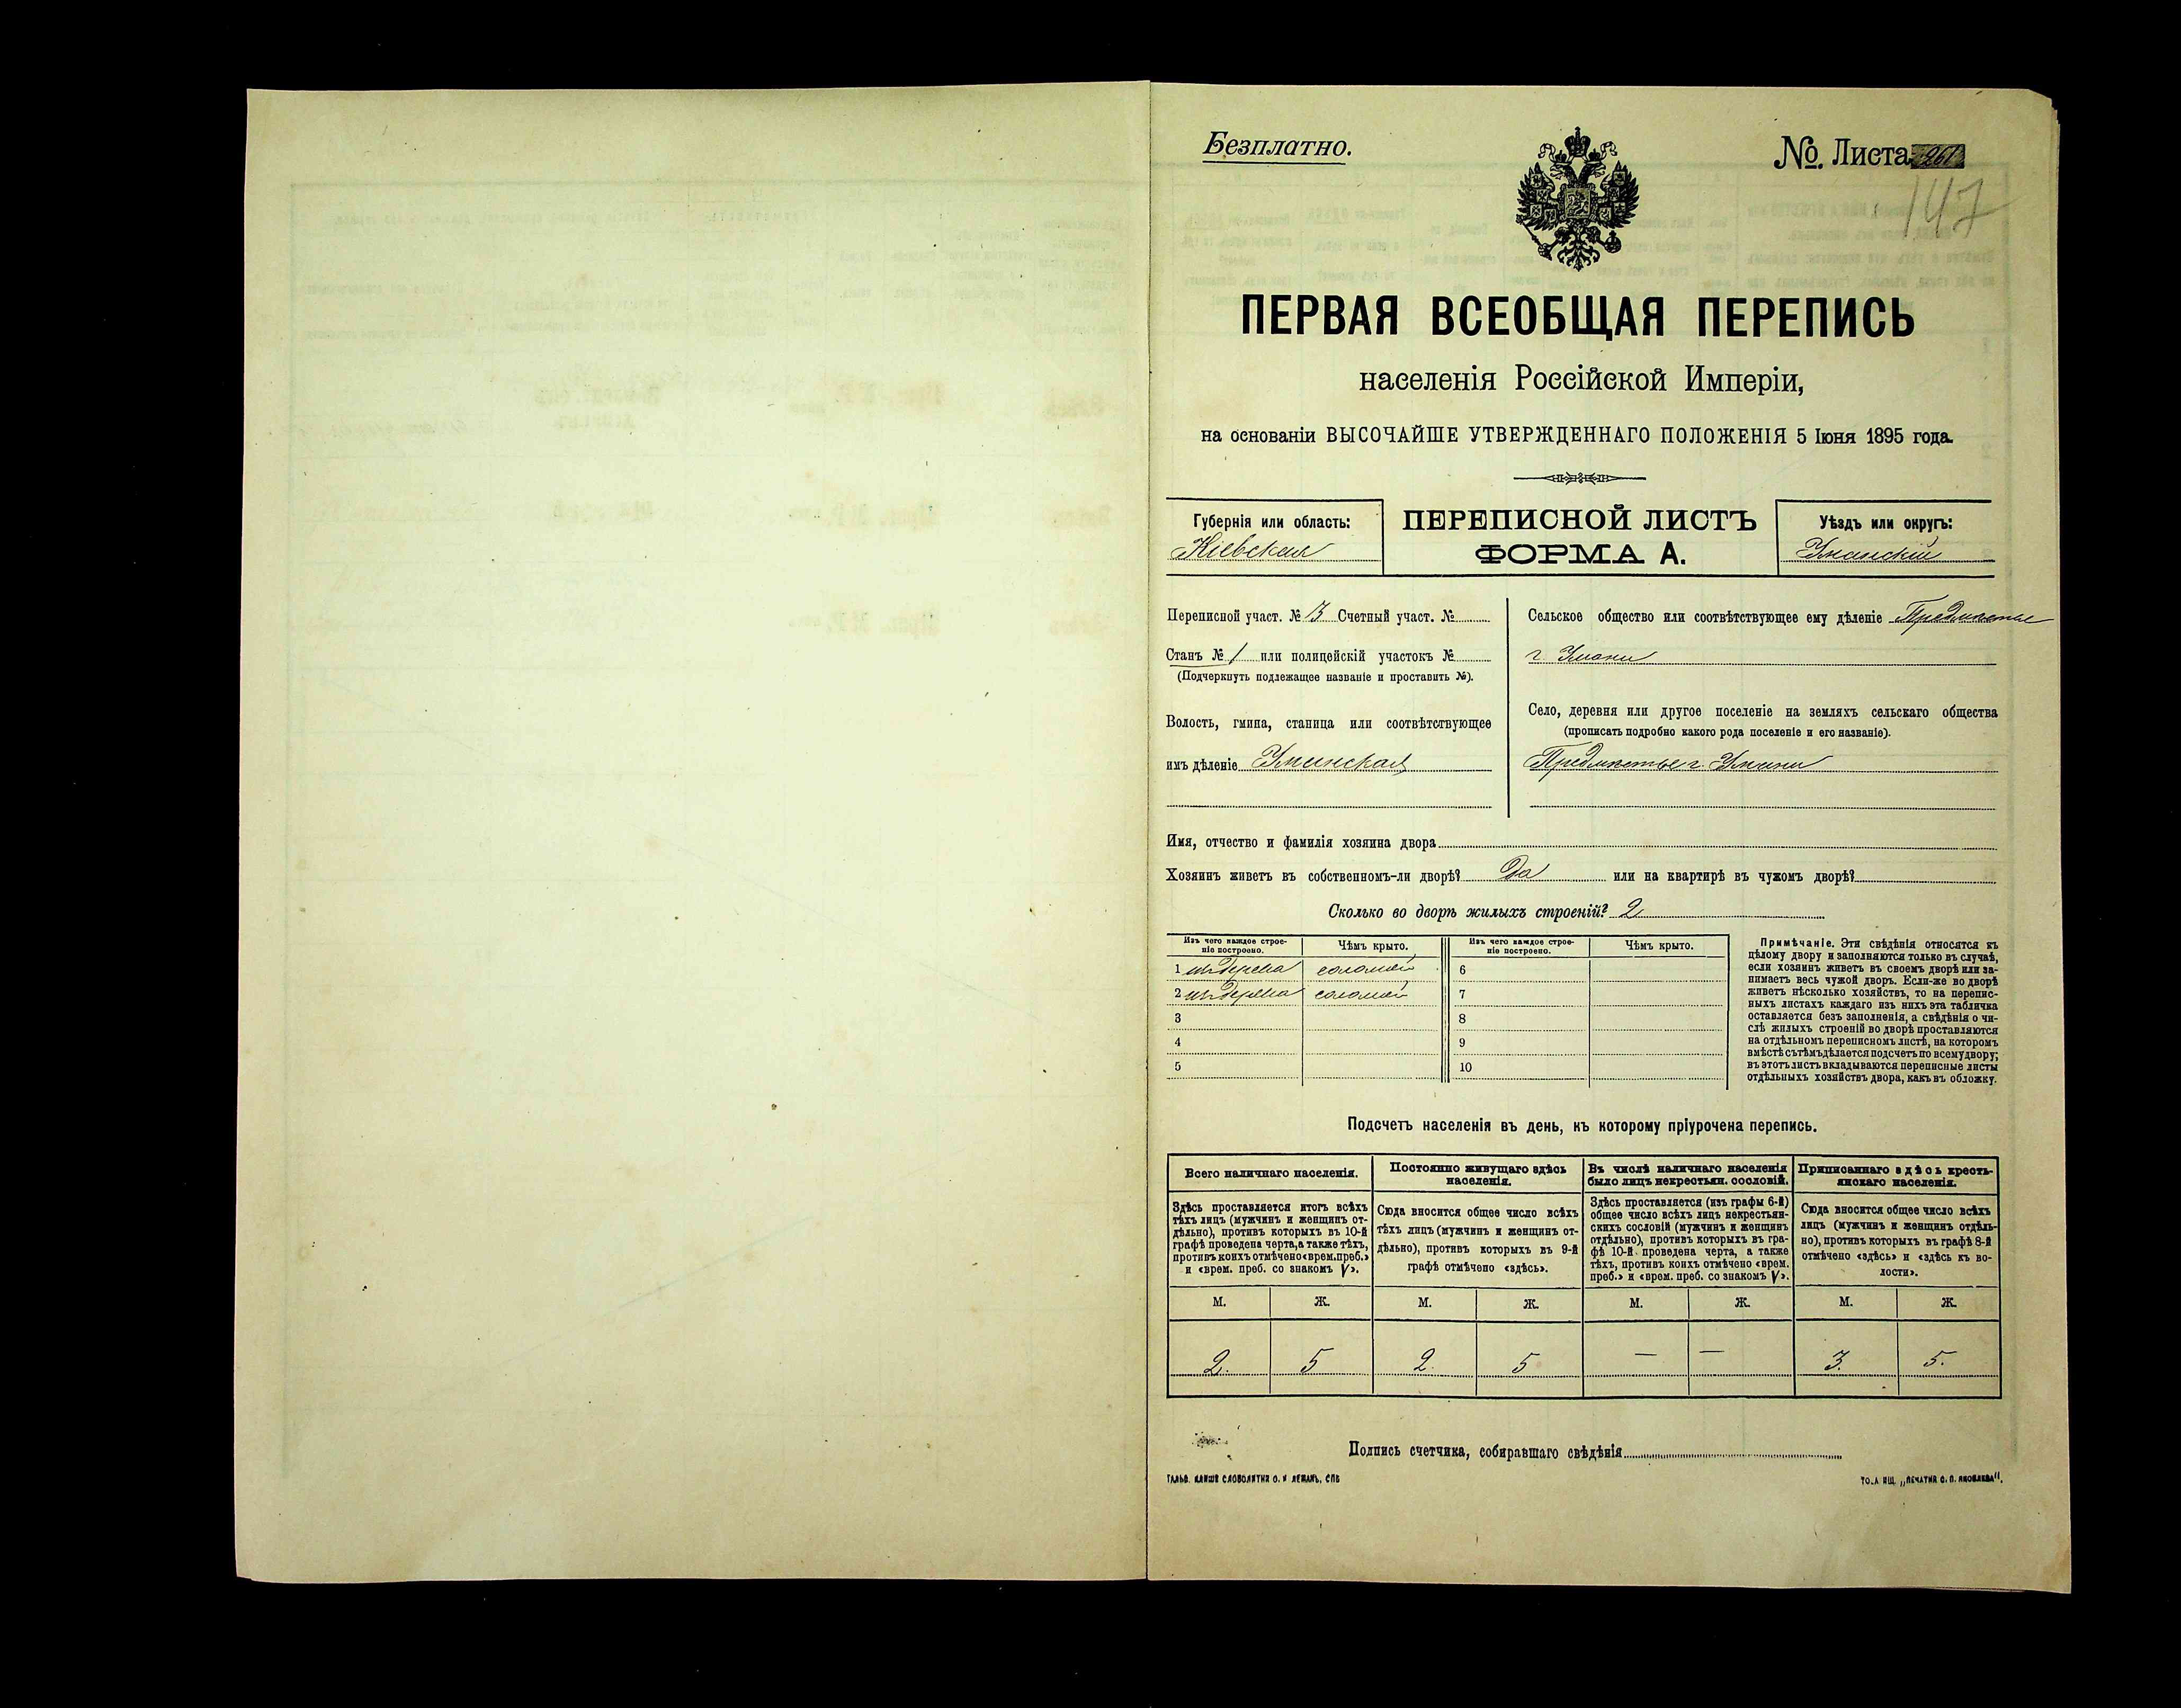 Безплатно.
№. Листа 261
147
ПЕРВАЯ ВСЕОБЩАЯ ПЕРЕПИСЬ
населенія Россійской Имперіи,
на основаніи ВЫСОЧАЙШЕ УТВЕРЖДЕННАГО ПОЛОЖЕНІЯ 5 Іюня 1895 года.
Губернія или область:
Кіевская
ПЕРЕПИСНОЙ ЛИСТЪ
ФОРМА А.
Уѣздъ или округъ:
Уманскій
Переписной участ. № 3 Счетный участ. №
Станъ № 1 или полицейскій участокъ №
(Подчеркнуть подлежащее названіе и проставить №).
Волость, гмина, станица или соотвѣтствующее
имъ дѣленіе Уманская
Сельское общество или соотвѣтствующее ему дѣленіе Предмѣстье
г. Умани
Село, деревня или другое поселеніе на земляхъ сельскаго общества
(прописать подробно какого рода поселеніе и его названіе).
Предмѣстье г. Умани
Имя, отчество и фамилія хозяина двора
Хозяинъ живетъ въ собственномъ-ли дворѣ? Да или на квартирѣ въ чужомъ дворѣ?
Сколько во дворѣ жилыхъ строеній? 2
Изъ чего каждое строе-
ніе построено.
Чѣмъ крыто.
Изъ чего каждое строе-
ніе построено.
Чѣмъ крыто.
1 изъ дерева соломой 6
2 изъ дерева соломой 7
3 8
4 9
5 10
Примѣчаніе. Эти свѣдѣнія относятся къ
цѣлому двору и заполняются только въ случаѣ,
если хозяинъ живетъ въ своемъ дворѣ или за-
нимаетъ весь чужой дворъ. Если-же во дворѣ
живетъ нѣсколько хозяйствъ, то на перепис-
ныхъ листахъ каждаго изъ нихъ эта табличка
оставляется безъ заполненія, а свѣдѣнія о чи-
слѣ жилыхъ строеній во дворѣ проставляются
на отдѣльномъ переписномъ листѣ, на которомъ
вмѣстѣ съ тѣмъ дѣлается подсчетъ по всему двору;
въ этотъ листъ вкладываются переписные листы
отдѣльныхъ хозяйствъ двора, какъ въ обложку.
Подсчетъ населенія въ день, къ которому пріурочена перепись.
Всего наличнаго населенія.
Здѣсь проставляется итогъ всѣхъ
тѣхъ лицъ (мужчинъ и женщинъ от-
дѣльно), противъ которыхъ въ 10-й
графѣ проведена черта, а также тѣхъ,
противъ коихъ отмѣчено «врем. преб.»
и «врем. преб. со знакомъ V».
Постоянно живущаго здѣсь
населенія.
Сюда вносится общее число всѣхъ
тѣхъ лицъ (мужчинъ и женщинъ от-
дѣльно), противъ которыхъ въ 9-й
графѣ отмѣчено «здѣсь».
Въ числѣ наличнаго населенія
было лицъ некрестьян. сословій.
Здѣсь проставляется (изъ графы 6-й)
общее число всѣхъ лицъ некрестьян-
скихъ сословій (мужчинъ и женщинъ
отдѣльно), противъ которыхъ въ гра-
фѣ 10-й проведена черта, а также
тѣхъ, противъ коихъ отмѣчено «врем.
преб.» и «врем. преб. со знакомъ V».
Приписаннаго здѣсь кресть-
янскаго населенія.
Сюда вносится общее число всѣхъ
лицъ (мужчинъ и женщинъ отдѣль-
но), противъ которыхъ въ графѣ 8-й
отмѣчено «здѣсь» и «здѣсь къ во-
лости».
М. Ж. М. Ж. М. Ж. М. Ж.
2. 5 2. 5 — — 3. 5.
Подпись счетчика, собиравшаго свѣдѣнія
ГАЛЬВ. КЛИШЕ СЛОВОЛИТНИ О. И ЛЕМАНЪ, СПБ
ТО-А ИЩ. „ПЕЧАТНЯ С. П. ЯКОВЛЕВА".